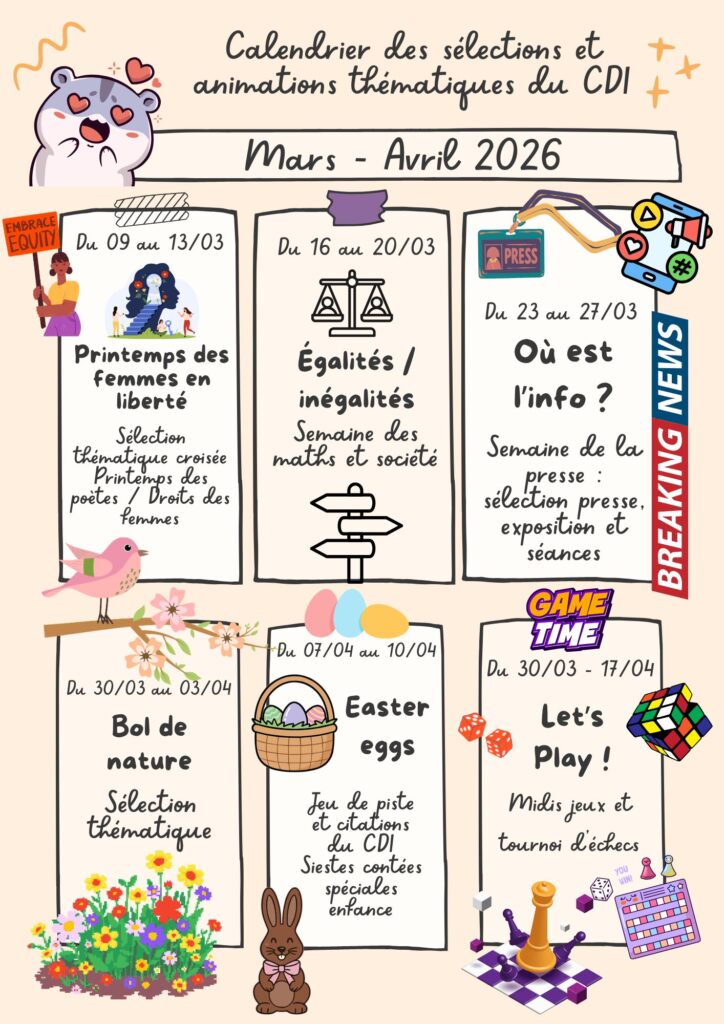 Calendrier des sélections et
animations thématiques du CDI
Mars - Avril 2026
EMBRACE
EQUITY
Du 09 au 13/03
Printemps des
femmes en
liberté
Sélection
thématique croisée
Printemps des
poètes / Droits des
femmes
Du 16 au 20/03
Égalités /
inégalités
Semaine des
maths et société
PRESS
Du 23 au 27/03
Où est
l'info ?
Semaine de la
presse :
sélection presse,
exposition et
séances
BREAKING NEWS
Du 30/03 au 03/04
Bol de
nature
Sélection
thématique
Du 07/04 au 10/04
Easter
eggs
Jeu de piste
et citations
du CDI
Siestes contées
spéciales
enfance
GAME
TIME
Du 30/03 - 17/04
Let's
Play !
Midis jeux et
tournoi d'échecs
YOU
WIN!